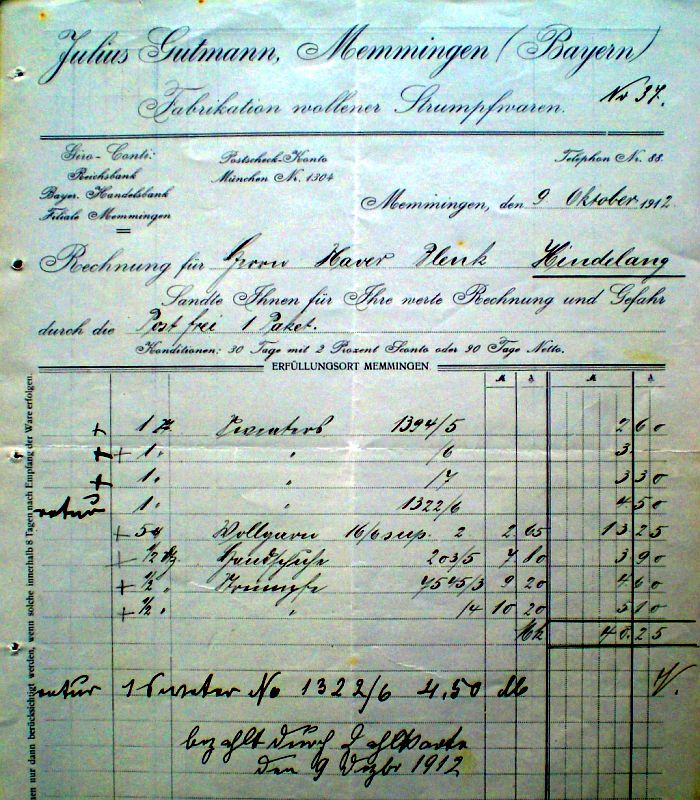 Julius Gutmann, Memmingen (Bayern)
Fabrikation wollener Strumpfwaren.
No 37.
Giro-Conti:
Reichsbank
Bayer. Handelsbank
Filiale Memmingen
Postscheck-Konto
München Nr. 1304
Telephon Nr. 88.
Memmingen, den 9 Oktober 1912
Rechnung für Herrn Xaver Hindelang
Sandte Ihnen für Ihre werte Rechnung und Gefahr
durch die Post frei 1 Paket.
Konditionen: 30 Tage mit 2 Prozent Sconto oder 90 Tage Netto.
ERFÜLLUNGSORT MEMMINGEN
M ₰ M ₰
+ 1 Sweaters 1394/5 2 60
+ + 1 " " /6 3.
+ 1 " " /7 3 30
retur 1 " " 1322/6 4 50
+ 5 Wollgarn 16/6 sup. 2 2 65 13 25
+ 1/2 Handschuhe 203/5 7 80 3 90
+ 1/2 " Strümpfe 4545/3 9 20 4 60
+ 1/2 " " /4 10 20 5 10
Mk 40.25
retur 1 Sweter No 1322/6 4,50 M
bezahlt durch Zahlkarte
den 9 Dezbr 1912
en nur dann berücksichtigt werden, wenn solche innerhalb 8 Tagen nach Empfang der Ware erfolgen.